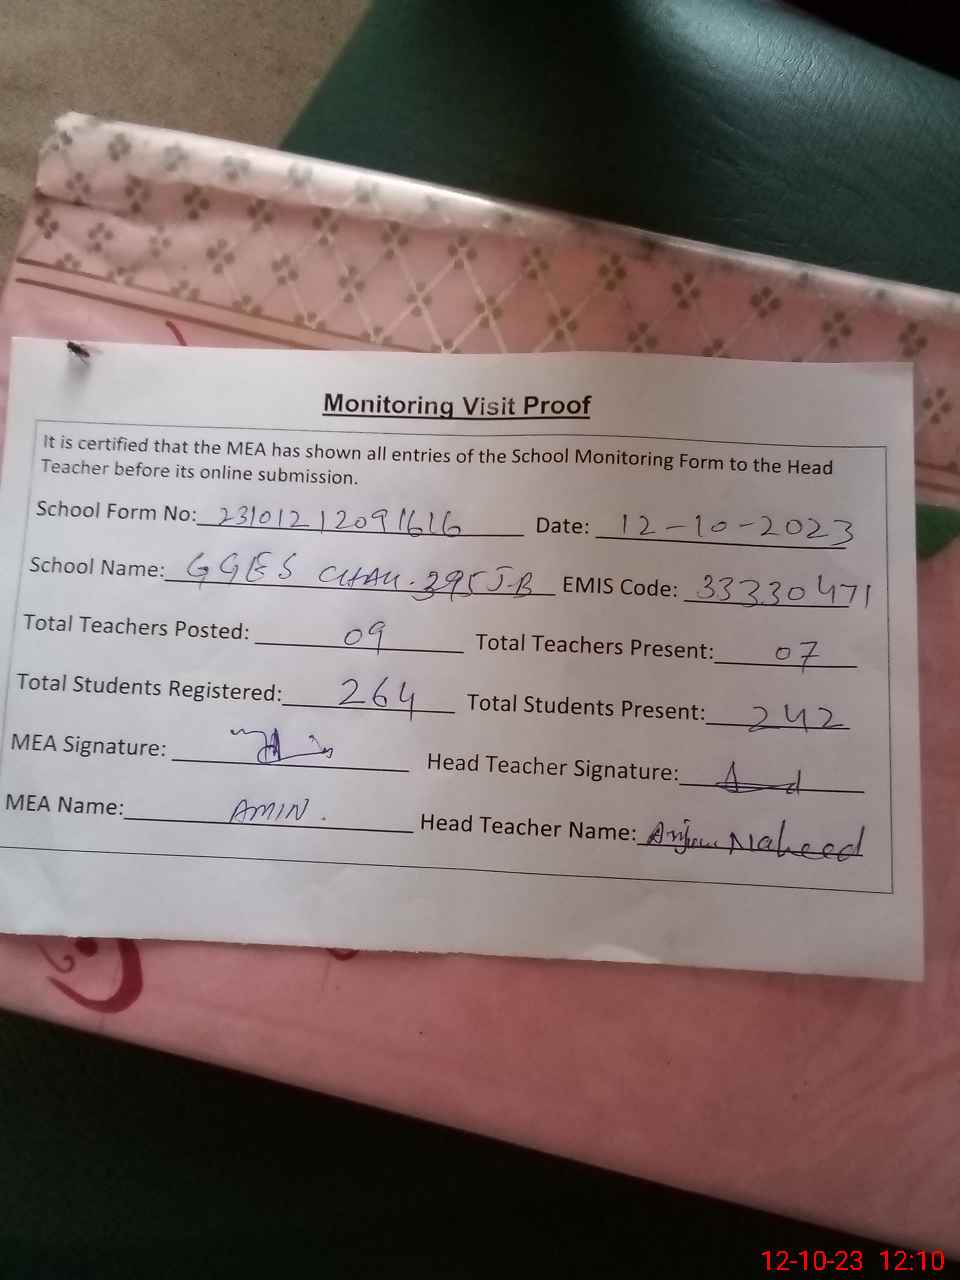 Monitoring Visit Proof
It is certified that the MEA has shown all entries of the School Monitoring Form to the Head
Teacher before its online submission.
School Form No: 2310121209 1616 Date: 12-10-2023
School Name: GGES CHAK. 395 J-B EMIS Code: 33330471
Total Teachers Posted: 09 Total Teachers Present: 07
Total Students Registered: 264 Total Students Present: 242
MEA Signature: Head Teacher Signature:
MEA Name: AMIN. Head Teacher Name: Anjum Naheed
12-10-23 12:10